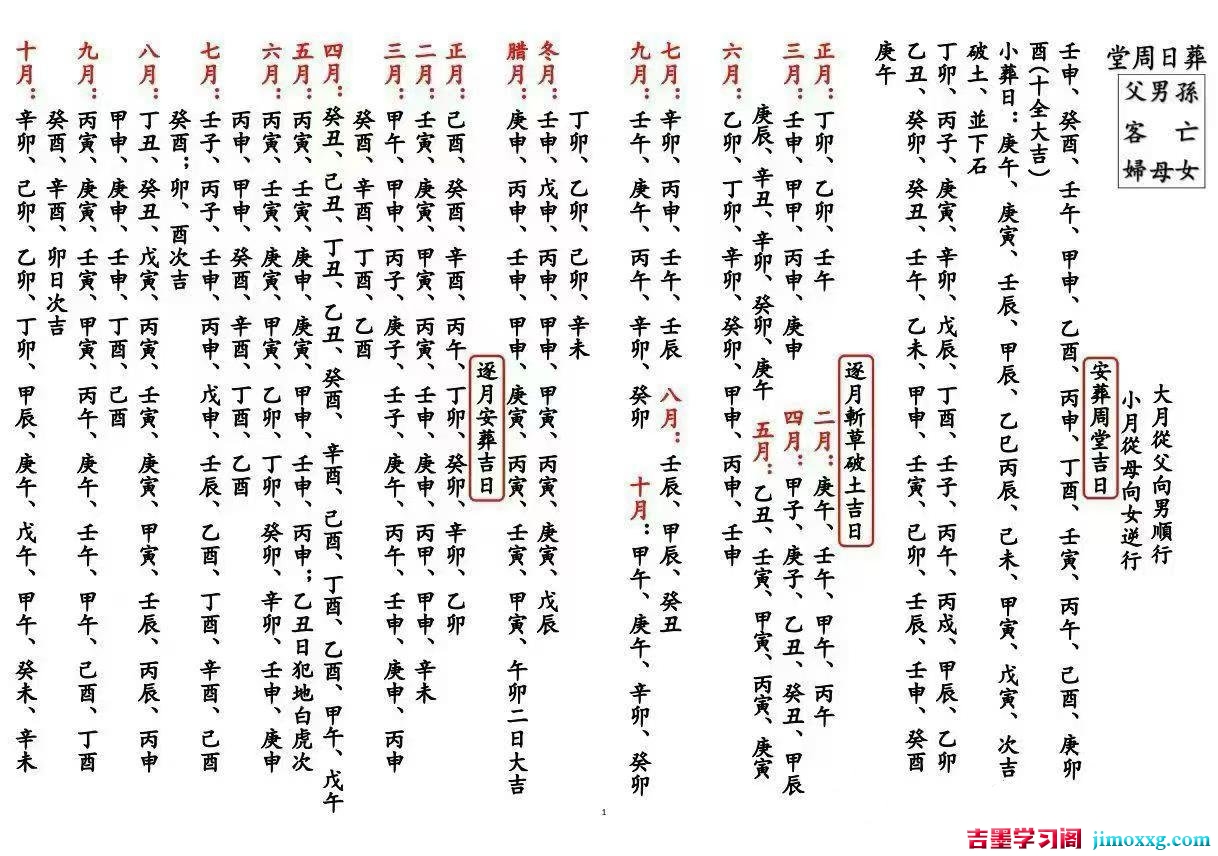 葬日周堂
孫男父
亡客
女母婦
大月從父向男順行
小月從母向女逆行
安葬周堂吉日
壬申、癸酉、壬午、甲申、乙酉、丙申、丁酉、壬寅、丙午、己酉、庚卯
酉(十全大吉)
小葬日：庚午、庚寅、壬辰、甲辰、乙巳丙辰、己未、甲寅、戊寅、次吉
破土、並下石
丁卯、丙子、庚寅、辛卯、戊辰、丁酉、壬子、丙午、丙戍、甲辰、乙卯
乙丑、癸酉、癸丑、壬午、乙未、甲寅、壬寅、己卯、壬辰、壬申、癸酉
庚午
逐月斬草破土吉日
正月：丁卯、乙卯、壬午 二月：庚午、壬午、甲午、丙午
三月：壬申、甲甲、丙申、庚申 四月：甲子、庚子、乙丑、癸丑、甲辰
庚辰、辛丑、辛卯、癸卯、庚午 五月：乙丑、壬寅、甲寅、丙寅、庚寅
六月：乙卯、丁卯、辛卯、癸卯、甲申、丙申、壬申
七月：辛卯、丙午、壬午、壬辰 八月：壬辰、甲辰、癸丑
九月：壬午、庚午、丙午、辛卯、癸卯 十月：甲午、庚午、辛卯、癸卯
丁卯、乙卯、己卯、辛未
冬月：壬申、戊申、丙申、甲申、甲寅、丙寅、庚寅、戊辰
腊月：庚申、丙申、壬申、甲申、庚寅、丙寅、壬寅、甲寅、午卯二日大吉
逐月安葬吉日
正月：己酉、癸酉、辛酉、丙午、丁卯、癸卯、辛卯、乙卯
二月：壬寅、庚寅、甲寅、丙寅、壬申、丙甲、甲申、辛未
三月：甲午、甲申、丙子、庚子、壬子、庚午、丙午、壬申、庚申、丙申
癸酉、辛酉、丁酉、乙酉
四月：癸丑、己丑、丁丑、乙丑、癸酉、辛酉、己酉、丁酉、乙酉、甲午、戊午
五月：丙寅、壬寅、庚申、庚寅、甲寅、甲申、壬申、丙申；乙丑日犯地白虎次
六月：丙寅、壬寅、庚寅、甲寅、乙卯、丁卯、癸卯、辛卯、壬申、庚申
丙申、甲申、癸酉、辛酉、丁酉、乙酉
七月：壬子、丙子、壬申、丙申、戊申、壬辰、乙酉、丁酉、辛酉、己酉
癸酉；卯、酉次吉
八月：丁丑、癸丑、戊寅、丙寅、壬寅、庚寅、甲寅、壬辰、丙辰、丙申
甲申、庚申、壬申、丁酉、己酉
九月：丙寅、庚寅、壬寅、甲寅、丙午、庚午、壬午、甲午、己酉、丁酉
癸酉、辛酉、卯日次吉
十月：辛卯、己卯、乙卯、丁卯、甲辰、庚午、戊午、甲午、癸未、辛未
1
吉墨学习阁 jimoxxg.com